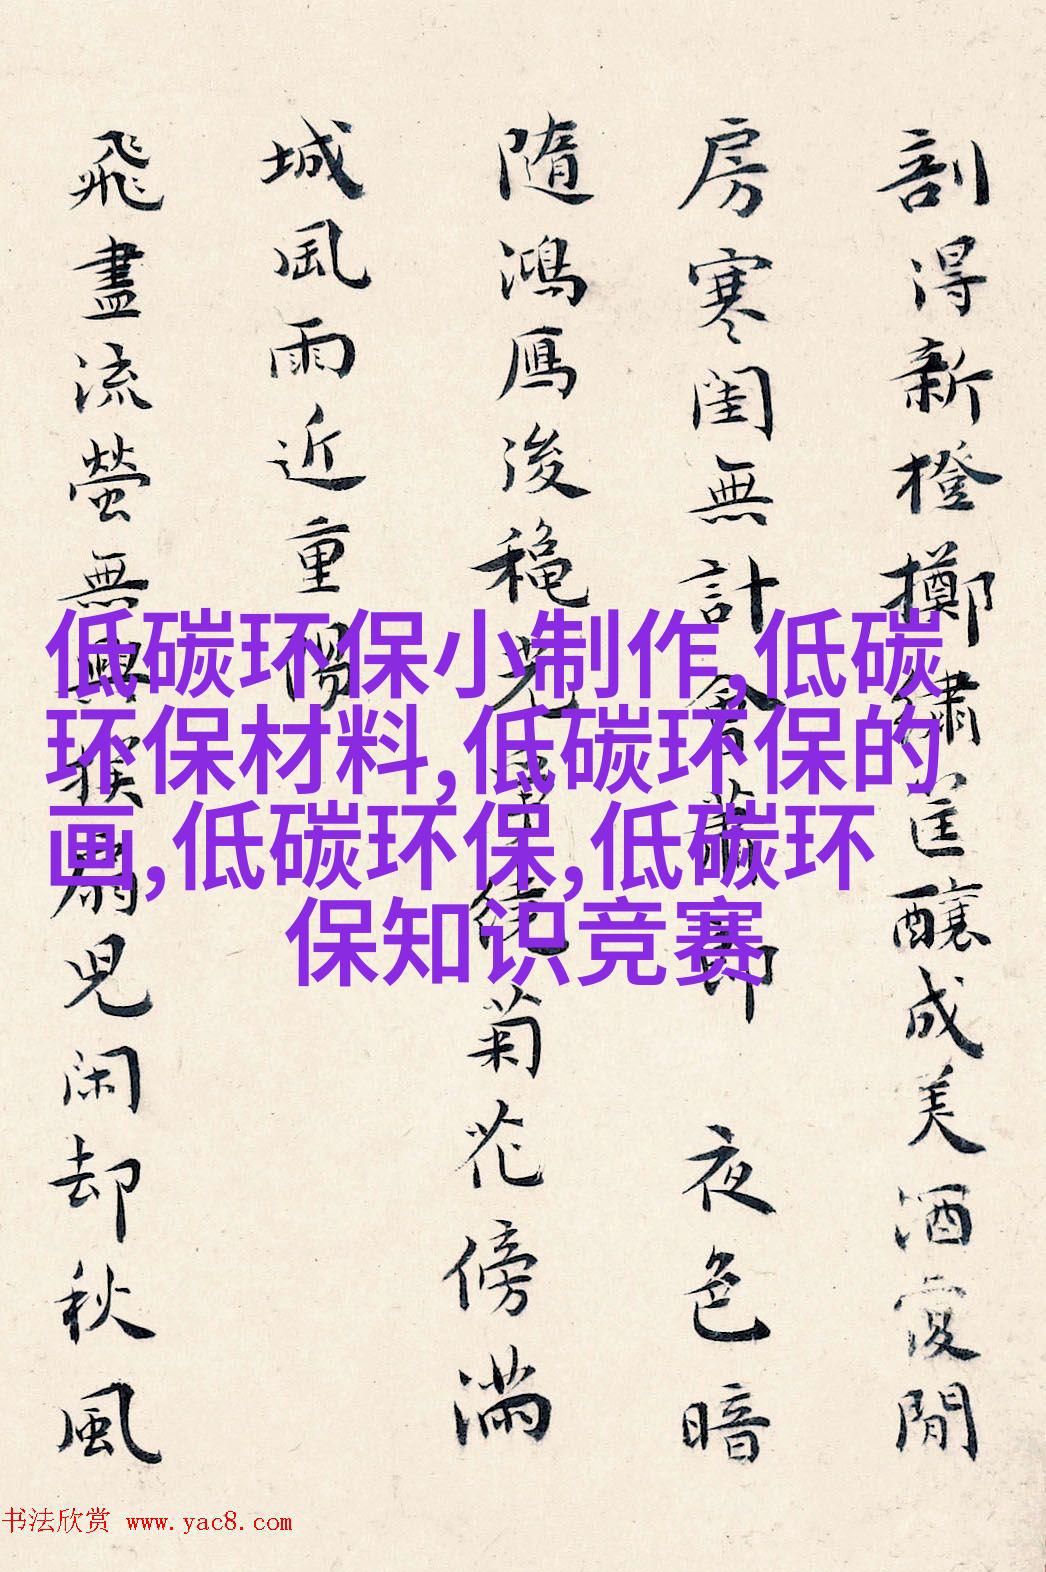 剖得新橙擲繡匡釀成美酒閒
房寒閨無計會蕭郎 夜色暗
隨鴻鴈後穐光早繞菊花傍滿
城風雨近重陽
飛盡流螢無興撲扇兒閑却秋風
低碳环保小制作,低碳
环保材料,低碳环保的
画,低碳环保,低碳环
保知识竞赛
书法欣赏 www.yac8.com